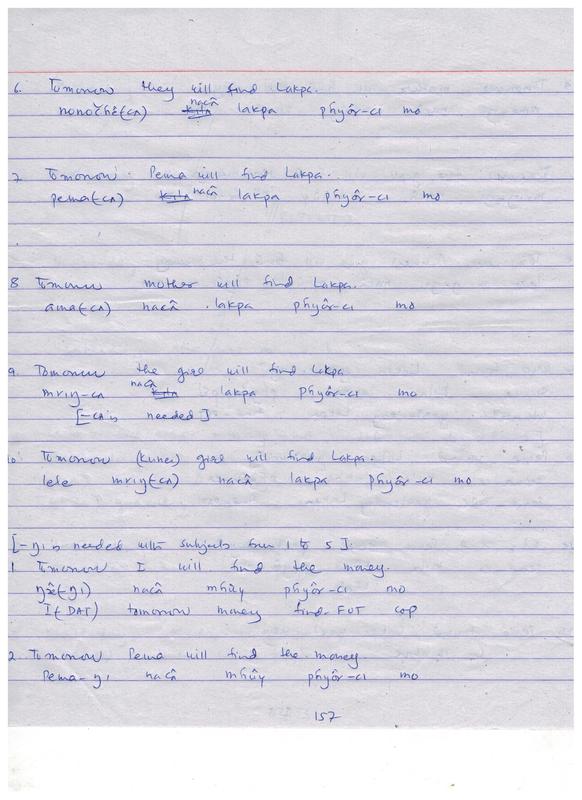 6. Tomorrow they will find Lakpa.
nonočhẽ(cʌ) nacâ lakpa phyôr-cɩ mo
7. Tomorrow Pema will find Lakpa.
pema(-cʌ) nacâ lakpa phyôr-cɩ mo
8 Tomorrow mother will find Lakpa.
ama(-cʌ) nacâ lakpa phyôr-cɩ mo
9. Tomorrow the girl will find Lakpa
mrɩŋ-cʌ nacâ lakpa phyôr-cɩ mo
[-cʌ is needed]
10. Tomorrow (Kune) girl will find Lakpa.
lele mrɩŋ(-cʌ) nacâ lakpa phyôr-cɩ mo
[-ŋɩ is needed with subjects from 1 to 5].
1. Tomorrow I will find the money.
ŋæ̂(-ŋɩ) nacâ mhũy phyôr-cɩ mo
I(-DAT) tomorrow money find-FUT cop
2. Tomorrow Pema will find the money
Pema-ŋɩ nacâ mhũy phyôr-cɩ mo
157